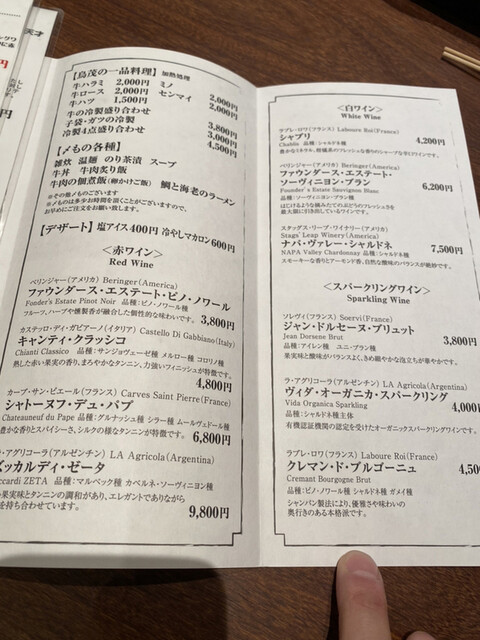 【鳥茂の一品料理】加熱処理
牛ハラミ 2,000円 ミノ 2,000円
牛ロース 2,000円 センマイ 2,000円
牛ハツ 1,500円
牛の冷製盛り合わせ 3,800円
子袋・ガツの冷製 3,000円
冷製4点盛り合わせ 4,500円
【〆もの各種】
雑炊 温麺 のり茶漬 スープ
牛丼 牛肉炙り飯
牛肉の佃煮飯(卵かけご飯) 鯛と海老のラーメン
※その他〆ものもございます
※〆ものは多少お時間を頂くことがございますので、
お早めにご注文をお願い致します。
【デザート】塩アイス400円 冷やしマカロン600円
<赤ワイン>
Red Wine
ベリンジャー(アメリカ) Beringer(America)
ファウンダース・エステート・ピノ・ノワール
Fonder's Estate Pinot Noir 品種:ピノ・ノワール種
フルーツ、ハーブや燻製香が融合した個性的な味わいです。 3,800円
カステッロ・ディ・ガビアーノ(イタリア) Castello Di Gabbiano(Italy)
キャンティ・クラッシコ
Chianti Classico 品種:サンジョヴェーゼ種 メルロー種 コロリノ種
熟した赤い果実の香り、まろやかなタンニン、力強いフィニッシュが特徴です。
4,800円
カーブ・サン・ピエール(フランス) Carves Saint Pierre(France)
シャトーヌフ・デュ・パプ
Chateauneuf du Pape 品種:グルナッシュ種 シラー種 ムールヴェドール種
豊かな香りとスパイシーさ、シルクの様なタンニンが特徴です。 6,800円
・アグリコーラ(アルゼンチン) LA Agricola(Argentina)
ズッカルディ・ゼータ
ccardi ZETA 品種:マルベック種 カベルネ・ソーヴィニヨン種
果実味とタンニンの調和があり、エレガントでありながら
を持ち合わせています。
9,800円
<白ワイン>
White Wine
ラブレ・ロワ(フランス) Laboure Roi(France)
シャブリ 4,200円
Chablis 品種:シャルドネ種
豊かなミネラル、柑橘系のフレッシュな香りのシャープな辛口ワインです。
ベリンジャー(アメリカ) Beringer(America)
ファウンダース・エステート・
ソーヴィニヨン・ブラン 6,200円
Founder's Estate Sauvignon Blanc
品種:ソーヴィニヨン・ブラン種
はじけるような摘みたてのぶどうのフレッシュさを
最大限に引き出しているワインです。
スタッグス・リープ・ワイナリー(アメリカ)
Stags' Leap Winery(America)
ナパ・ヴァレー・シャルドネ 7,500円
NAPA Valley Chardonnay 品種:シャルドネ種
スモーキーな香りとアーモンド香、自然な酸味のバランスが絶妙です。
<スパークリングワイン>
Sparkling Wine
ソレヴィ(フランス) Soervi(France)
ジャン・ドルセーヌ・ブリュット 3,800円
Jean Dorsene Brut
品種:アイレン種 ユニ・ブラン種
果実味と酸味がバランスよく、きめ細やかな泡立ちが華やかです。
ラ・アグリコーラ(アルゼンチン) LA Agricola(Argentina)
ヴィダ・オーガニカ・スパークリング
Vida Organica Sparkling 4,000円
品種:シャルドネ種主体
有機認証機関の認定を受けたオーガニックスパークリングワインです。
ラブレ・ロワ(フランス) Laboure Roi(France)
クレマン・ド・ブルゴーニュ 4,50
Cremant Bourgogne Brut
品種:ピノ・ノワール種 シャルドネ種 ガメイ種
シャンパン製法により、優雅さや味わいの
奥行きのある本格派です。